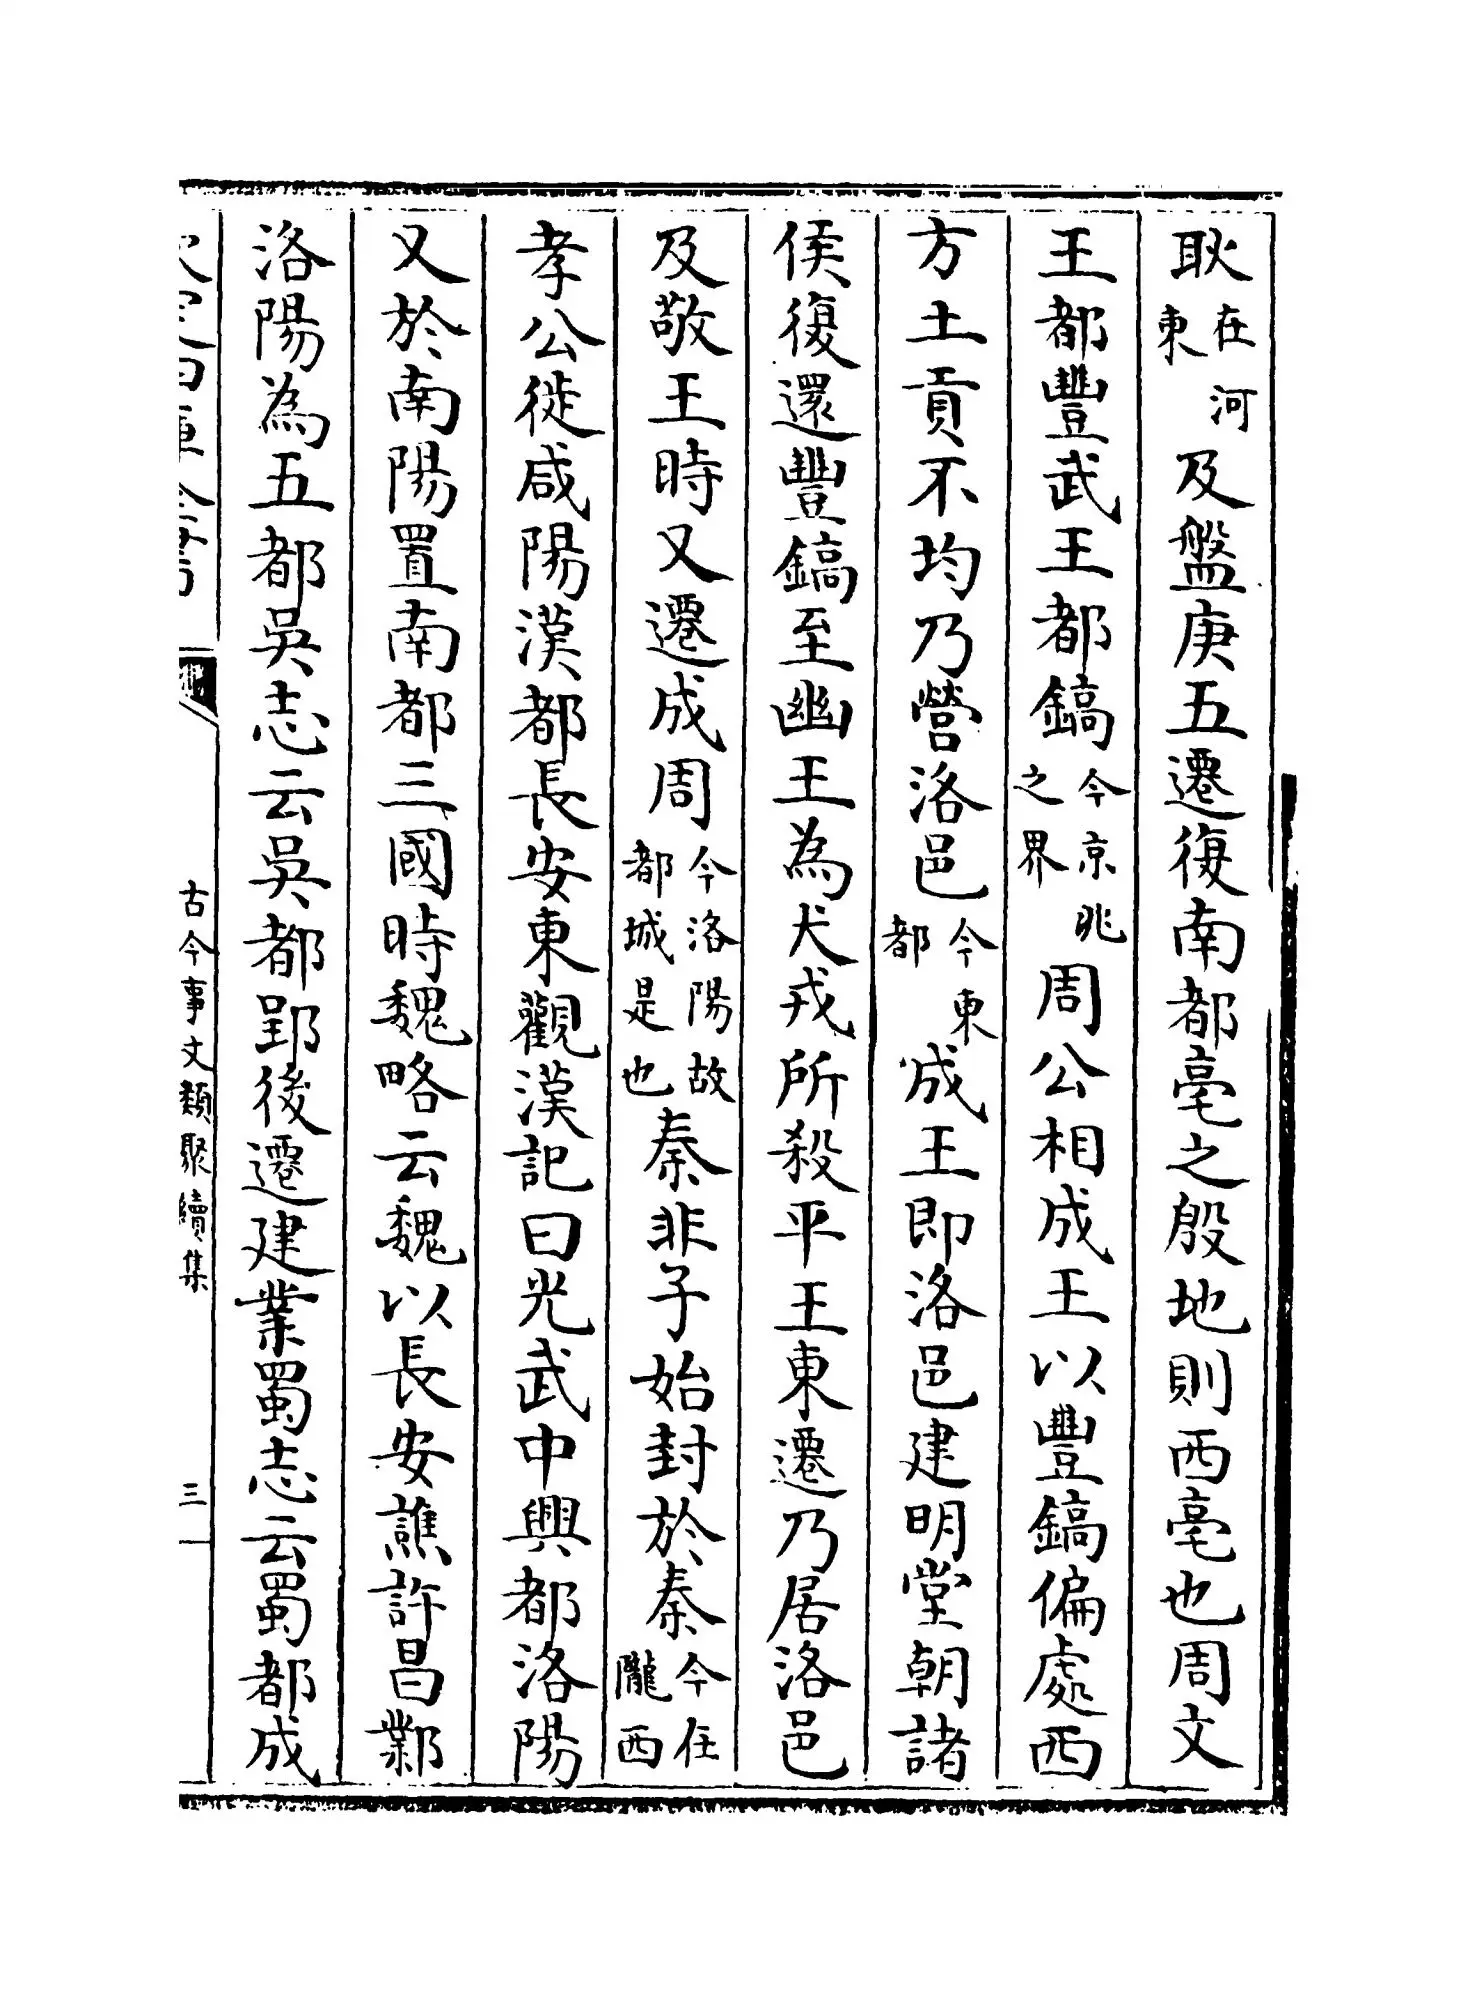 耿在河東及盤庚五遷復南都亳之殷地則西亳也周文
王都豐武王都鎬今京兆之界周公相成王以豐鎬偏處西
方土貢不均乃營洛邑今東都成王即洛邑建明堂朝諸
侯復還豐鎬至幽王為犬戎所殺平王東遷乃居洛邑
及敬王時又遷成周今洛陽故都城是也秦非子始封於秦今在隴西
孝公徙咸陽漢都長安東觀漢記曰光武中興都洛陽
又於南陽置南都三國時魏略云魏以長安譙許昌鄴
洛陽為五都吳志云吳都郢後遷建業蜀志云蜀都成
古今事文類聚續集
三